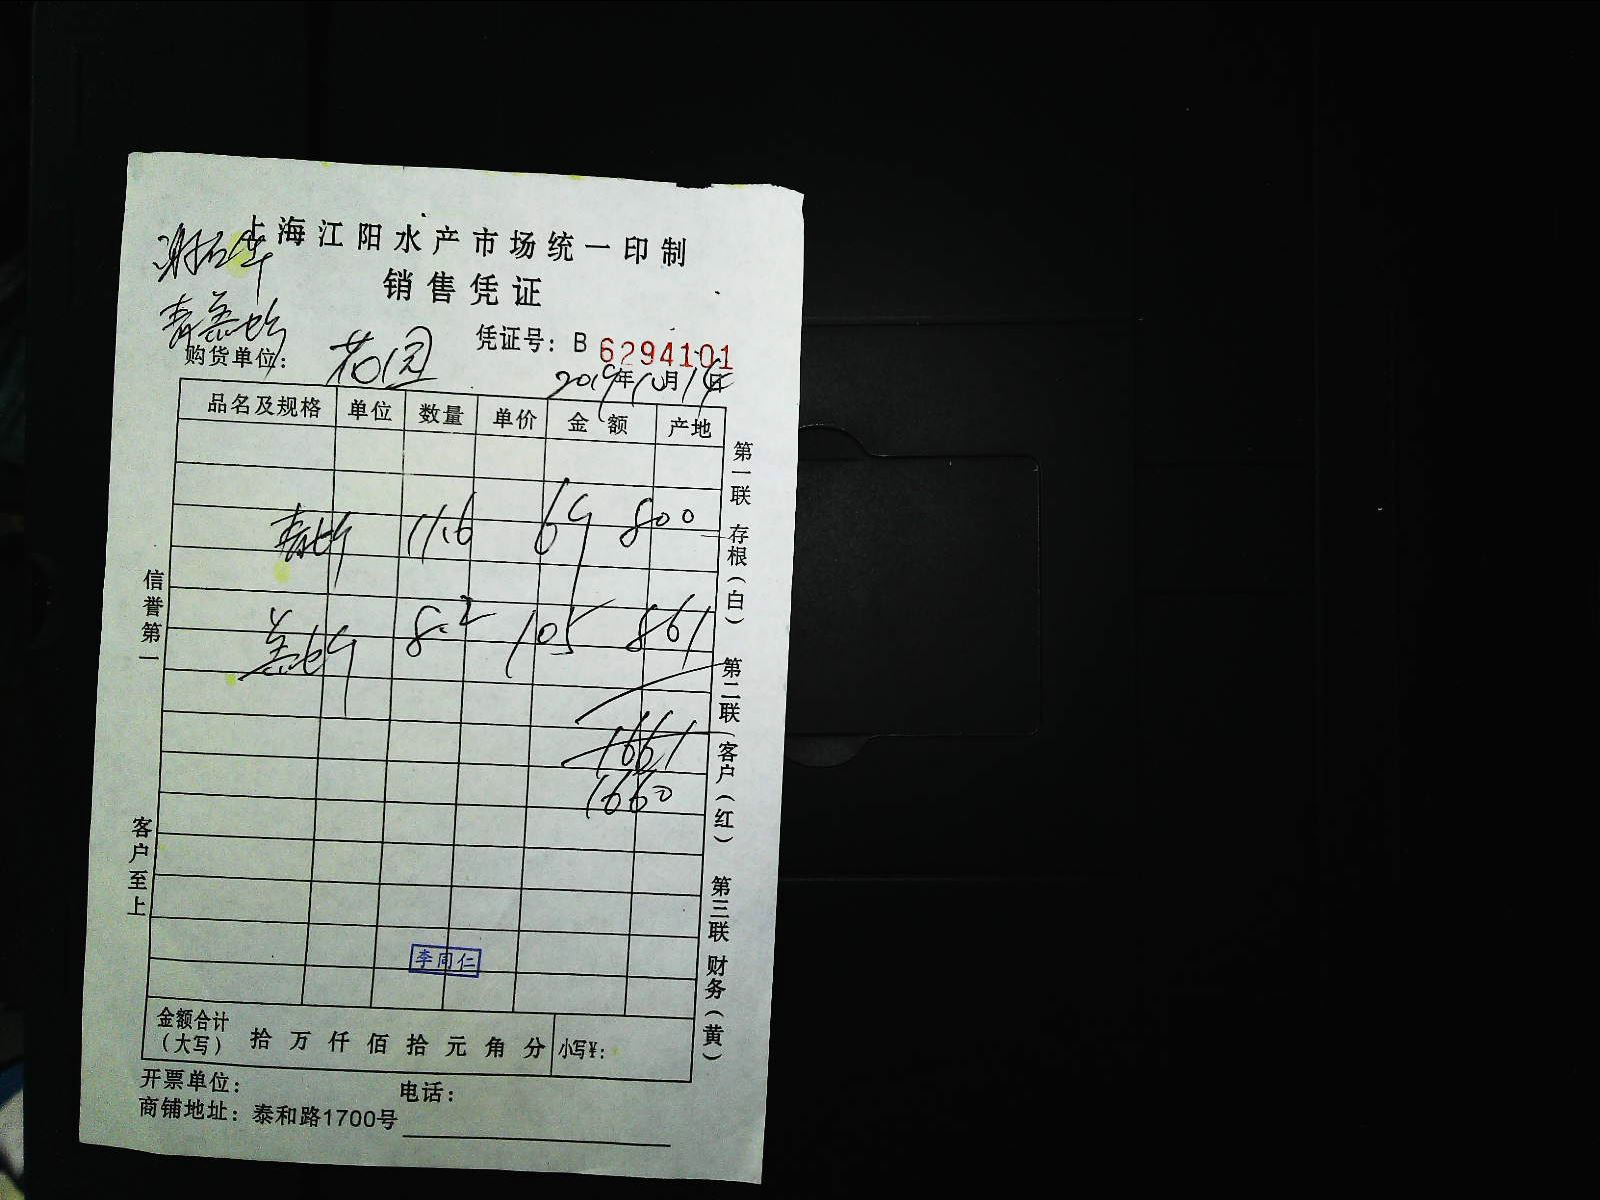 上海江阳水产市场统一印制
销售凭证
凭证号: B 6294101
购货单位: 花园
2019年10月14日
品名及规格 单位 数量 单价 金额 产地
11.6 69 800
8.2 105 861
1661
1660
李同仁
金额合计
(大写) 拾 万 仟 佰 拾 元 角 分 小写¥:
开票单位: 电话:
商铺地址: 泰和路1700号
信誉第一
客户至上
第一联 存根(白)
第二联(客户(红)
第三联 财务(黄)